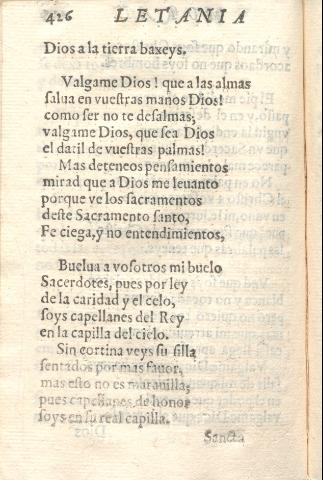 426 LETANIA
Dios a la tierra baxeys.
Valgame Dios! que a las almas
salua en vuestras manos Dios!
como ser no te desalmas;
valgame Dios, que sea Dios
el datil de vuestras palmas!
Mas deteneos pensamientos
mirad que a Dios me leuanto
porque ve los sacramentos
deste Sacramento santo,
Fe ciega, y no entendimientos,
Buelua a vosotros mi buelo
Sacerdotes, pues por ley
de la caridad y el celo,
soys capellanes del Rey
en la capilla del cielo.
Sin cortina veys su silla
sentados por mas fauor,
mas esto no es marauilla;
pues capellanes de honor
soys en su real capilla.
Sancta